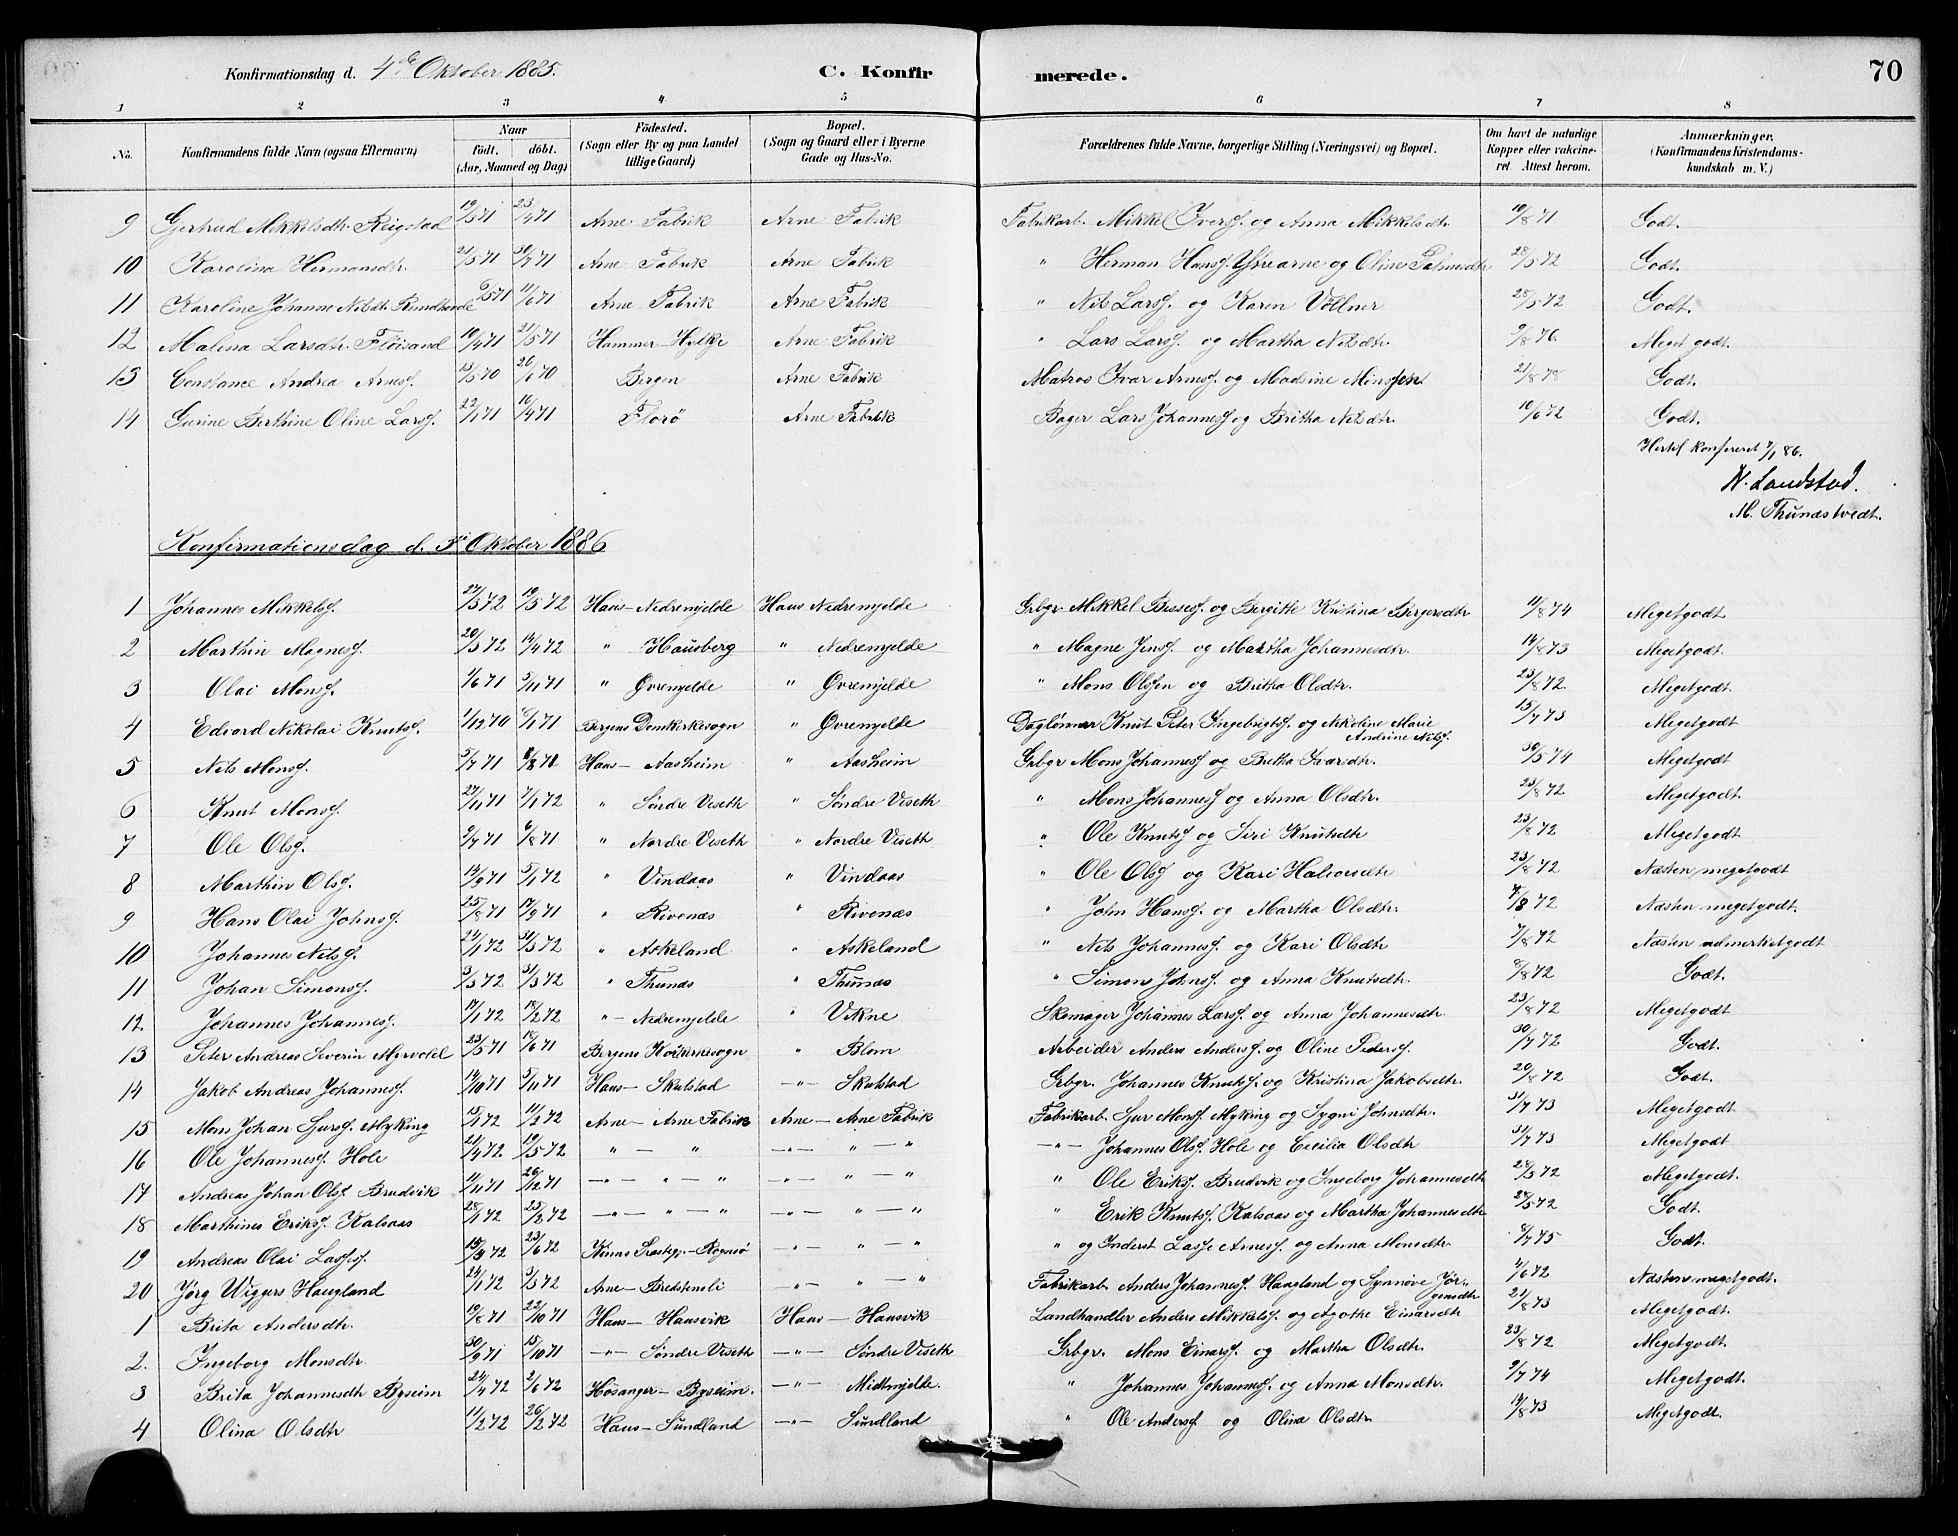 Konfirmationsdag d. 4de Oktober 1885. C. Konfirmerede. 70
1 2 3 4 5 6 7 8
No. Konfirmandens fulde Navn (ogsaa Efternavn) Naar födt. döbt. (Aar, Maaned og Dag) Födested. (Sogn eller By og paa Landet tillige Gaard) Bopæl. (Sogn og Gaard eller i Byerne Gade og Hus-No. Forældrenes fulde Navne, borgerlige Stilling (Næringsvei) og Bopæl. Om havt de naturlige Kopper eller vakcineret Attest herom. Anmærkninger. (Konfirmandens Kristendomskundskab m. V.)
9 Gertrud Mikkelsdtr. Reigstad 19/5 71 23/4 71 Arne Fabrik Arne Fabrik Fabrikarb. Mikkel Iversf. og Anna Mikkelsdtr. 10/8 71 Godt.
10 Karolina Hermansdtr. 21/5 71 30/7 71 Arne Fabrik Arne Fabrik " Herman Hansf. Ytrearne og Oline 28/5 72 Godt.
11 Karoline Johanne Nilsdt. 6/5 71 11/6 71 Arne Fabrik Arne Fabrik " Nils Larsf. og Karen Vollner 28/5 72 Godt.
12 Malena Larsdtr. Fløisand 10/4 71 21/5 71 Hammer - Hylkje Arne Fabrik " Lars Larsf. og Martha Nilsdtr. 9/8 76. Meget godt.
13 Constance Andrea Arnesf. 13/5 70 26/6 70 Bergen Arne Fabrik Matros Ivar Arnesf. og Madrine 21/8 78 Godt.
14 Gurine Berthine Oline Larsf. 22/1 71 16/4 71 Florø Arne Fabrik Bager Lars Johannesf og Britha Nilsdtr. 10/6 72 Godt.
Hertil konfereret 7/1 86.
N. Landstad.
M. Thunestvedt.
Konfirmationsdag d. 3die Oktober 1886
1 Johannes Mikkelsf. 27/3 72 19/5 72 Haus - Nedremjelde Haus Nedremjelde Grbgr. Mikkel og Bergitte Kristina Birgersdtr 11/8 74 Megetgodt
2 Marthin Magnesf. 20/3 72 14/4 72 " Hausberg " Nedremjelde " Magne Jensf. og Martha Johannesdtr. 14/8 73 Megetgodt.
3 Olai Monsf. 1/6 71 5/11 71 " Øvremjelde " Øvremjelde " Mons Olsen og Britha Olsdtr. 23/8 72. Megetgodt.
4 Edvard Nikolai Knutsf. 1/12 70 6/1 71 Bergens Domkirkesogn " Øvremjelde Daglønner Knut Peter Ingebrigtsf. og Nikoline Marie Andrine Nilsf. 15/7 73 Megetgodt
5 Nils Monsf. 5/7 71 6/8 71 Haus - Aasheim " Aasheim Grbgr Mons Johannesf og Britha Ivarsdtr. 30/5 74 Megetgodt
6 Knut Monsf. 27/11 71 7/1 72 " Søndre Viseth " Søndre Viseth " Mons Johannesf og Anna Olsdtr. 23/8 72 Megetgodt.
7 Ole Olsf. 2/7 71 6/8 71 " Nordre Viseth " Nordre Viseth " Ole Knutsf og Siri Knutsdtr 23/8 72 Megetgodt
8 Marthin Olsf. 14/9 71 5/1 72 " Vindaas " Vindaas " Ole Olsf og Kari Halvorsdtr 23/8 72 Næsten megetgodt
9 Hans Olai Johnsf. 25/8 71 17/9 71 " Rivenæs " Rivenæs " John Hansf. og Martha Olsdtr. 7/8 72 Næsten megetgodt.
10 Johannes Nilsf. 24/1 72 31/3 72 " Askeland " Askeland " Nils Johannesf. og Kari Olsdtr 7/8 72 Næsten udmerketgodt
11 Johan Simonsf. 3/3 72 31/3 72 " Thunæs " Thunæs " Simons Johnsf. og Anna Knutsdtr. 8/8 72 Godt.
12. Johannes Johannesf. 17/1 72 18/2 72 " - Nedremjelde " Vikne Skomager Johannes Larsf. og Anna Johannesdtr. 23/8 72 Megetgodt.
13 Peter Andreas Severin Myrvold 23/5 71 18/6 71 Bergens Korskirkesogn " Blom Arbeider Anders Andersf. og Oline Pedersf. 30/7 72 Godt.
14 Jakob Andreas Johannesf. 14/10 71 5/11 71 Haus - Skulstad - " - Skulstad Grbgr. Johannes Knutsf. og Kristina Jakobsdtr. 20/8 72 Godt.
15 Mons Johan Sjursf. Myking 15/1 72 11/2 72 Arne - Arne Fabrik Arne - Arne Fabrik Fabrikarb. Sjur Monsf. Myking og Sygni Johnsdtr. 31/7 73 Megetgodt.
16 Ole Johannesf. Hole 21/4 72 19/5 72 " - " - " - " - " - " - Johannes Olsf. Hole og Cecilia Olsdtr 31/7 73 Megetgodt
17 Andreas Johan Olsf Brudvik 11/11 71 26/12 71 - " - " - " - " - " - " " Ole Eriksf. Brudvik og Ingeborg Johannesdtr 28/3 72 Megetgodt.
18 Marthines Eriksf. Kalsaas 28/1 72 25/2 72 - " - " - " - " - " - " " Erik Knutsf. Kalsaas og Martha Johannesdtr 27/5 72 Godt.
19 Andreas Olai Lassesf. 15/3 72 23/6 72 Kinns Præstegj. - Rognsø - " - " - " " og Inderst Lasse Arnesf. og Anna Monsdtr. 8/7 75 Godt.
20 Jørg Wiggers Haugland 24/1 72 3/3 72 Arne - Bredstenli - " - " - " Fabrikarb. Anders Johannesf. Haugland og Synnøve Jørgensdtr 4/6 72 Næsten megetgodt.
1 Brita Andersdtr. 19/8 71 22/10 71 Haus - Hausvik Haus - Hausvik Landhandler Anders Mikkelsf. og Agothe Einarsdtr 21/8 73 Megetgodt.
2. Ingeborg Monsdtr. 30/9 71 15/10 71 - " - Søndre Viseth - " - Søndre Viseth Grbgr. Mons Einarsf. og Martha Olsdtr. 23/8 72 Megetgodt.
3 Brita Johannesdtr Byseim 24/4 72 2/6 72 Hosanger - Byseim. - " - Midtmjelde. " Johannes Johannesf. og Anna Monsdtr. 9/7 74 Megetgodt.
4 Olina Olsdtr 11/2 72 26/2 72 Haus - Sundland - " - Sundland " Ole Andersf og Olina Olsdtr. 14/8 73 Megetgodt.